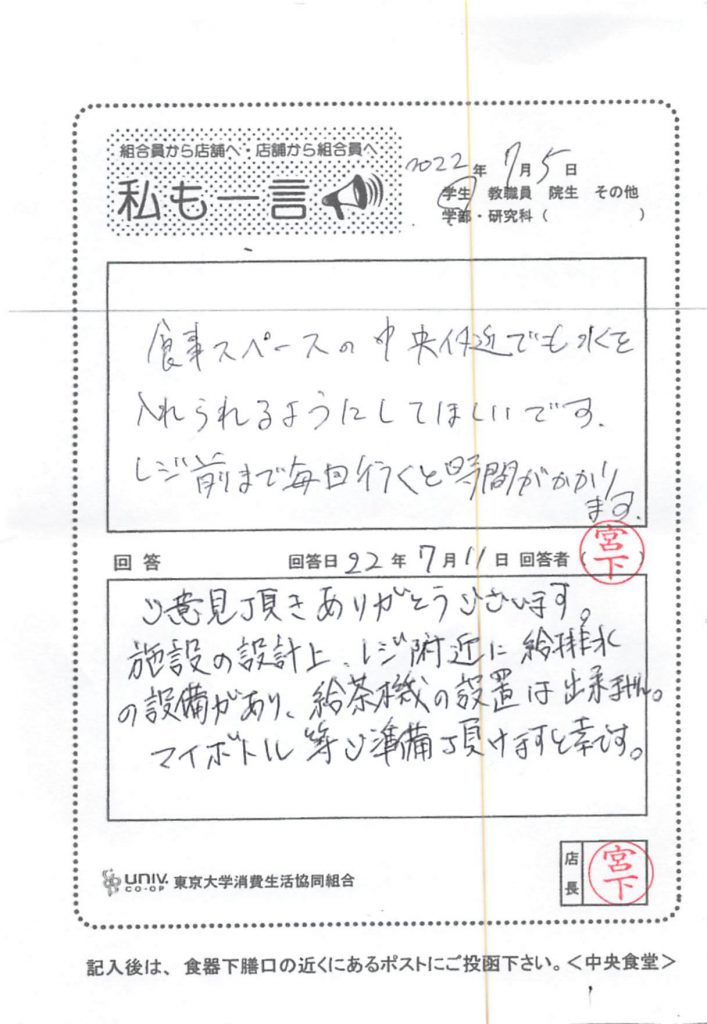 組合員から店舗へ・店舗から組合員へ
私も一言
2022年7月5日
学生 教職員 院生 その他
学部・研究科（ ）
食事スペースの中央付近でも水を
入れられるようにしてほしいです.
レジ前まで毎回行くと時間がかかり
ます.
回答 回答日22年7月11日 回答者（宮下）
ご意見頂きありがとうございます。
施設の設計上、レジ附近に給排水
の設備があり、給茶機の設置は出来ません。
マイボトル等ご準備頂けますと幸です。
UNIV. CO-OP 東京大学消費生活協同組合
店長 宮下
記入後は、食器下膳口の近くにあるポストにご投函下さい。＜中央食堂＞